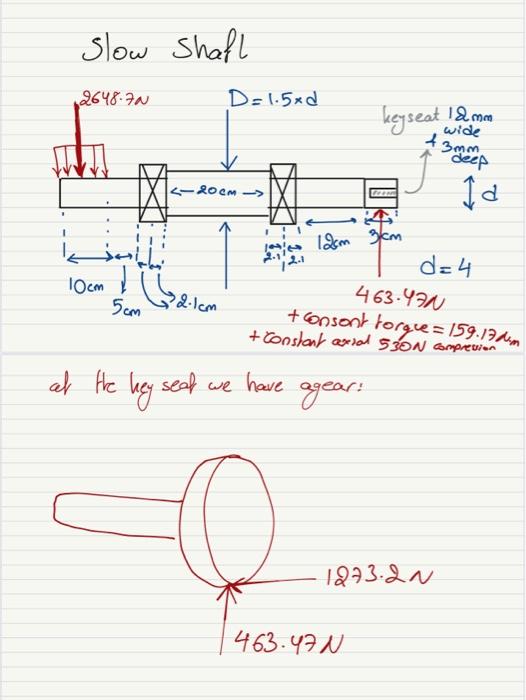 Slow Shaft
2648.7N
D=1.5xd
keyseat 12mm
wide
+ 3mm
deep
20cm
d
2.1 2.1
12cm
3cm
10cm
5cm
2.1cm
d=4
463.47N
+ consont torque = 159.17N.m
+ constant axial 530N compression
at the key seat we have agear:
1273.2N
463.47N